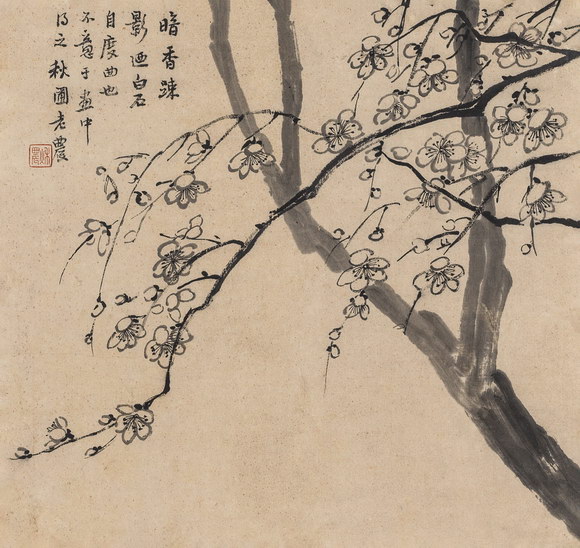 暗香疎
影迺白石
自度曲也
不意于畫中
得之秋圃老農